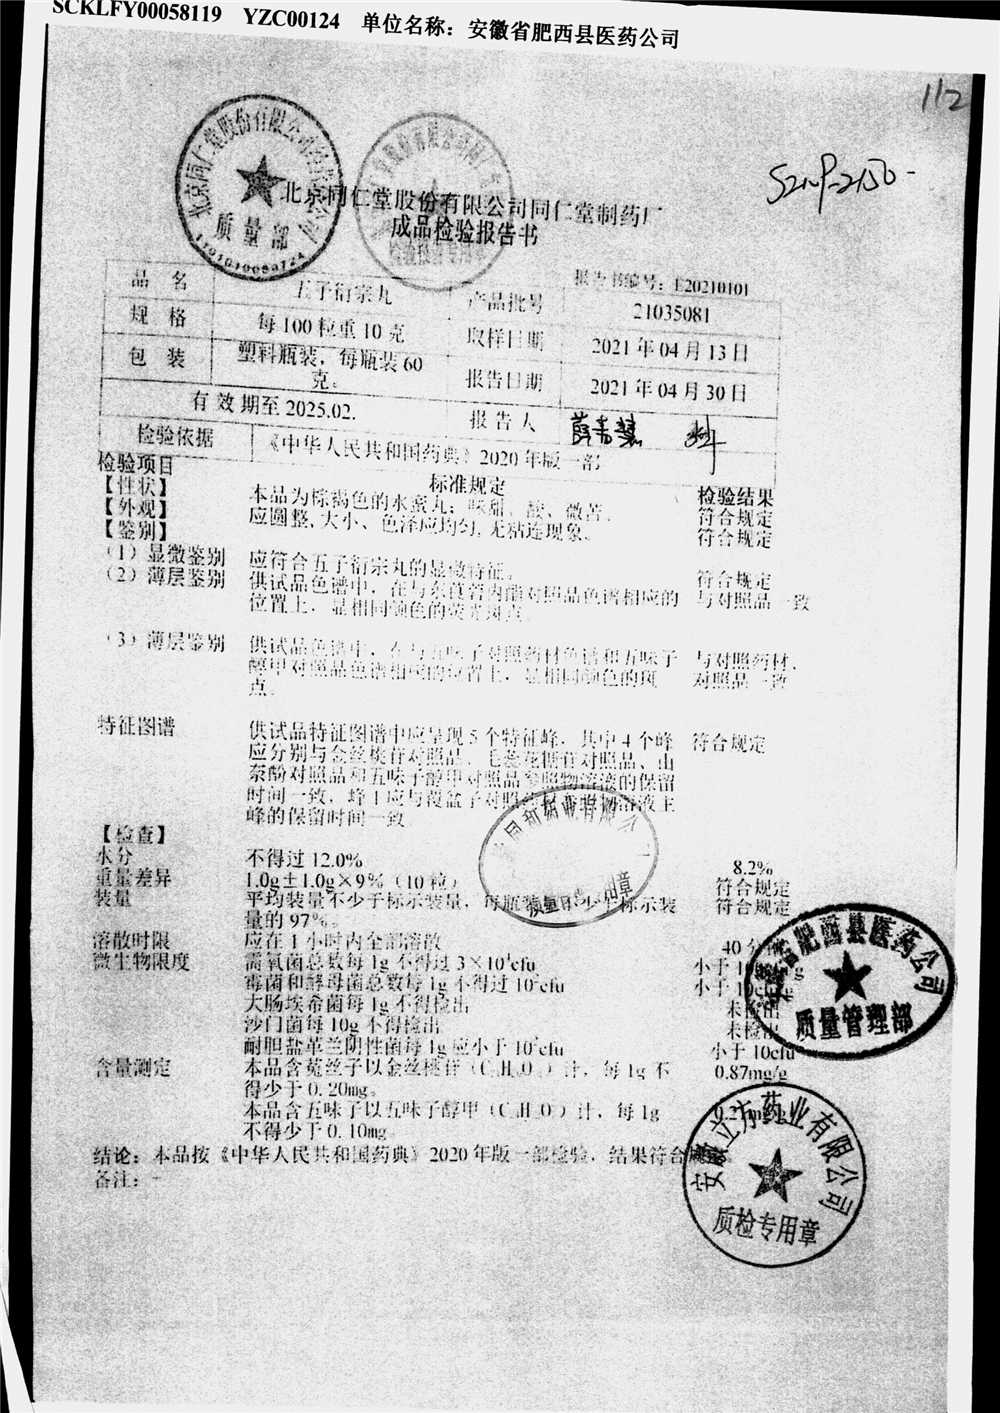 SCKLFY00058119 YZC00124 单位名称：安徽省肥西县医药公司
112
北京同仁堂股份有限公司同仁堂制药厂
成品检验报告书
质量部
1101010080724
报告书编号：E20210101
品 名 五子衍宗丸 产品批号 21035081
规 格 每100粒重10克 取样日期 2021年04月13日
包 装 塑料瓶装，每瓶装60克。 报告日期 2021年04月30日
有效期至2025.02. 报告人
检验依据 《中华人民共和国药典》2020年版一部
检验项目 标准规定 检验结果
【性状】 本品为棕褐色的水蜜丸；味甜、酸、微苦。 符合规定
【外观】 应圆整,大小、色泽应均匀,无粘连现象。 符合规定
【鉴别】
（1）显微鉴别 应符合五子衍宗丸的显微特征。 符合规定
（2）薄层鉴别 供试品色谱中，在与 对照品色谱相应的 与对照品一致
位置上，显相同颜色的荧光斑点。
（3）薄层鉴别 供试品色谱中，在与五味子对照药材色谱和五味子 与对照药材、
醇甲对照品色谱相应的位置上，显相同颜色的斑 对照品一致
点。
特征图谱 供试品特征图谱中应呈现5个特征峰，其中4个峰 符合规定
应分别与金丝桃苷对照品、毛蕊花糖苷对照品、山
柰酚对照品和五味子醇甲对照品参照物溶液的保留
时间一致，峰1应与覆盆子对照 溶液主
峰的保留时间一致
【检查】
水分 不得过12.0% 8.2%
重量差异 1.0g±1.0g×9%（10粒） 符合规定
装量 平均装量不少于标示装量，每瓶装量 不少于标示装 符合规定
量的97%。
溶散时限 应在1小时内全部溶散 40分
微生物限度 需氧菌总数每1g不得过3×10 cfu 小于10
霉菌和酵母菌总数每1g不得过10²cfu 小于10cfu/g
大肠埃希菌每1g不得检出 未检出
沙门菌每10g不得检出 未检出
耐胆盐革兰阴性菌每1g应小于10²cfu 小于10cfu
含量测定 本品含菟丝子以金丝桃苷（C H O ）计，每1g不 0.87mg/g
得少于0.20mg。
本品含五味子以五味子醇甲（C H O ）计，每1g
不得少于0.10mg。
结论：本品按《中华人民共和国药典》2020年版一部检验，结果符合
备注：-
安徽省肥西县医药公司
质量管理部
安徽立方药业有限公司
质检专用章